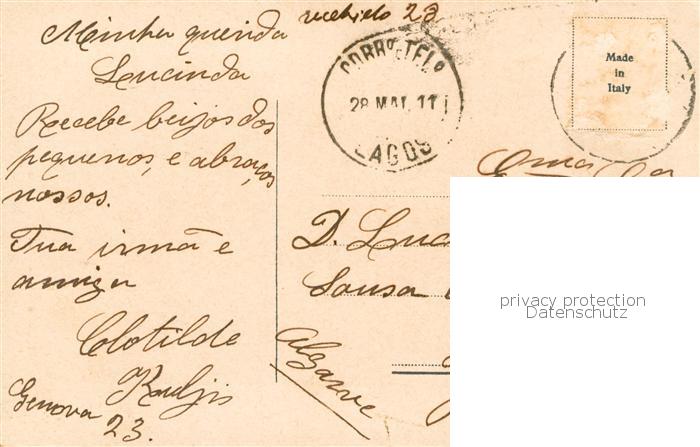 Minha querida
Lucinda
Recebe beijos dos
pequenos, e abraços
nossos.
Tua irmã e
amiga
Clotilde
Genova
23.
recebido 23
CORRº E TELº
28 MAI. 11
LAGOS
Made
in
Italy
Exma
D. Luc
Sousa
Algarve
privacy protection
Datenschutz